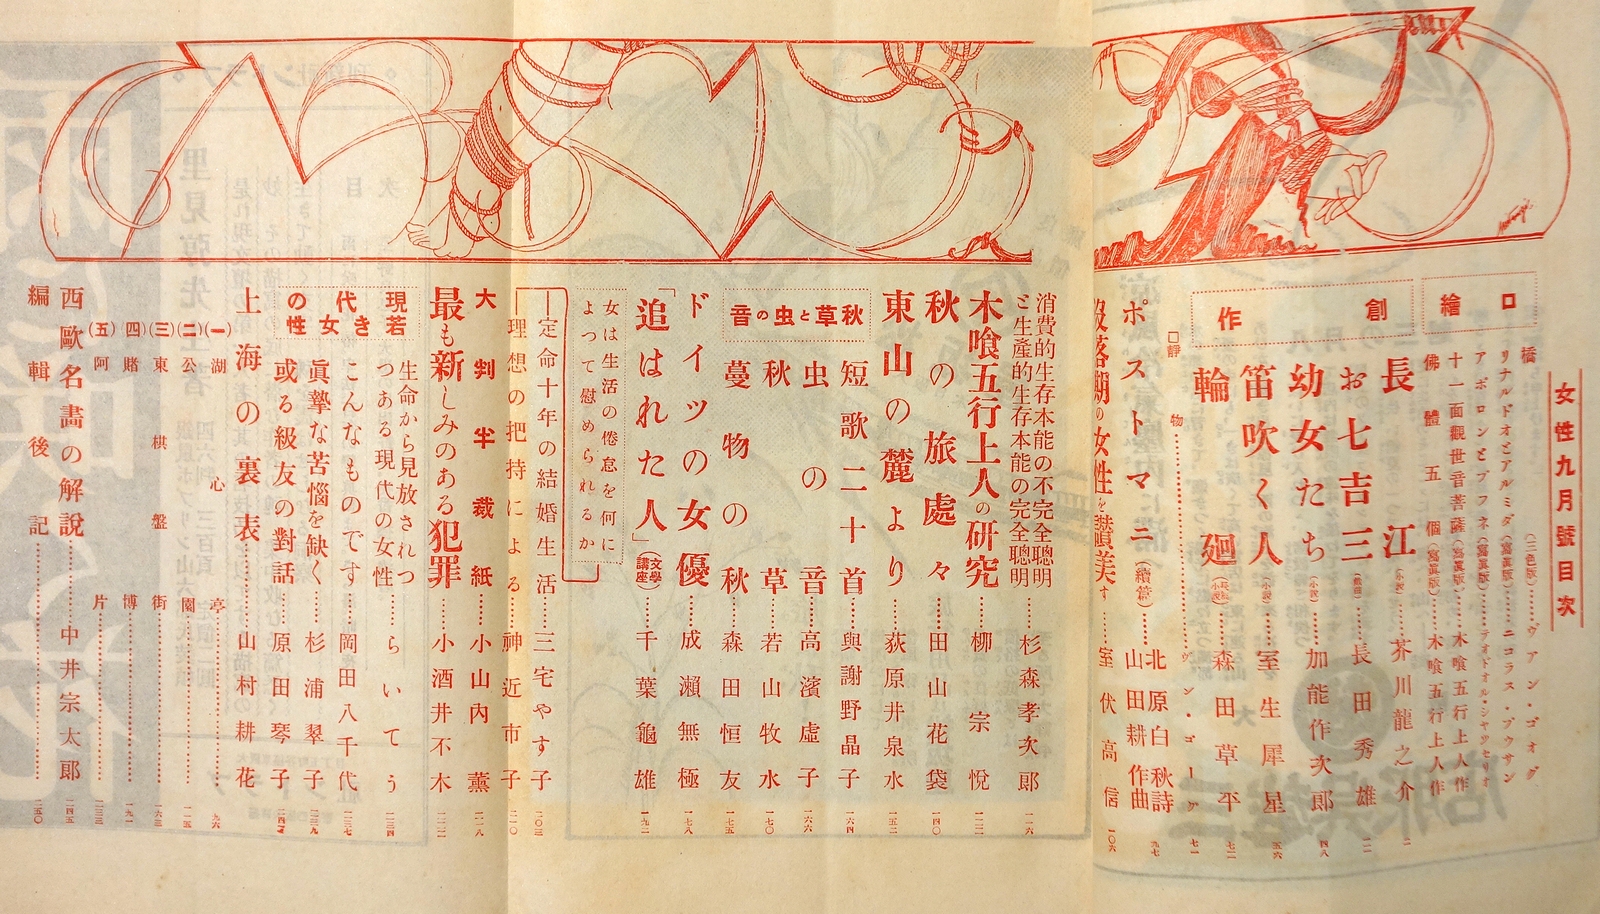 女性九月號目次
口繪
橋（三色版）……ヴアン・ゴオグ
リナルドオとアルミダ（寫眞版）……ニコラス・プウサン
アポロンとダフネ（寫眞版）……テオドオル・シヤツセリオ
十一面觀世音菩薩（寫眞版）……木喰五行上人作
佛體五個（寫眞版）……木喰五行上人作
創作
長江（小説）……芥川龍之介 二
お七吉三（戲曲）……長田秀雄
幼女たち（小説）……加能作次郎 四八
笛吹く人（小説）……室生犀星 五六
輪廻（長篇小説）……森田草平 七二
□靜物……ヴン・ゴーグ 七一
ポストマニ（續篇）……北原白秋詩 山田耕作曲 九七
沒落期の女性を讃美す……室伏高信 一〇六
消費的生存本能の不完全聰明と生產的生存本能の完全聰明……杉森孝次郎 一一六
木喰五行上人の研究……柳宗悅 一二二
秋の旅處々……田山花袋 一四〇
東山の麓より……荻原井泉水 一五二
秋草と虫の音
短歌二十首……與謝野晶子 一六四
虫の音……高濱虛子 一六六
秋草……若山牧水 一七〇
蔓物の秋……森田恒友 一七五
ドイツの女優……成瀨無極 一七八
「追はれた人」（文學講座）……千葉龜雄 一九二
女は生活の倦怠を何によつて慰められるか
定命十年の結婚生活……三宅やす子 二〇三
理想の把持による……神近市子 二一〇
大判半裁紙……小山內薰 二一八
最も新しみのある犯罪……小酒井不木 二二二
現代の若き女性
生命から見放されつつある現代の女性……らいてう 二三四
こんなものです……岡田八千代 二三七
眞摯な苦惱を缺く……杉浦翠子 二三九
或る級友の對話……原田琴子 二四二
上海の裏表……山村耕花
（一）湖心亭…… 九六
（二）公園…… 一一五
（三）東棋盤街…… 一六三
（四）賭博…… 一九一
（五）阿片…… 二三三
西歐名畫の解說……中井宗太郎 二四五
編輯後記…… 二五〇